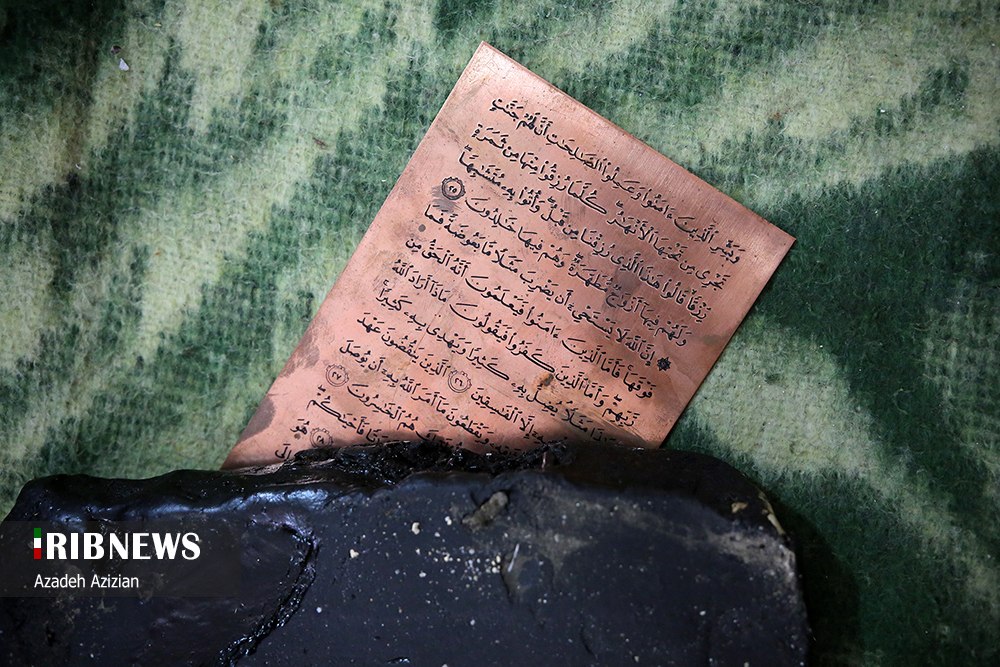 وَبَشِّرِ ٱلَّذِينَ ءَامَنُوا۟ وَعَمِلُوا۟ ٱلصَّٰلِحَٰتِ أَنَّ لَهُمْ جَنَّٰتٍ
تَجْرِى مِن تَحْتِهَا ٱلْأَنْهَٰرُ كُلَّمَا رُزِقُوا۟ مِنْهَا مِن ثَمَرَةٍ
رِّزْقًا قَالُوا۟ هَٰذَا ٱلَّذِى رُزِقْنَا مِن قَبْلُ وَأُتُوا۟ بِهِۦ مُتَشَٰبِهًا
وَلَهُمْ فِيهَآ أَزْوَٰجٌ مُّطَهَّرَةٌ وَهُمْ فِيهَا خَٰلِدُونَ ٢٥
۞ إِنَّ ٱللَّهَ لَا يَسْتَحْىِۦٓ أَن يَضْرِبَ مَثَلًا مَّا بَعُوضَةً فَمَا
فَوْقَهَا فَأَمَّا ٱلَّذِينَ ءَامَنُوا۟ فَيَعْلَمُونَ أَنَّهُ ٱلْحَقُّ مِن
رَّبِّهِمْ وَأَمَّا ٱلَّذِينَ كَفَرُوا۟ فَيَقُولُونَ مَاذَآ أَرَادَ ٱللَّهُ
مَثَلًا يُضِلُّ بِهِۦ كَثِيرًا وَيَهْدِى بِهِۦ كَثِيرًا
بِهِۦٓ إِلَّا ٱلْفَٰسِقِينَ ٢٦ ٱلَّذِينَ يَنقُضُونَ عَهْدَ
وَيَقْطَعُونَ مَآ أَمَرَ ٱللَّهُ بِهِۦٓ أَن يُوصَلَ
هُمُ ٱلْخَٰسِرُونَ ٢٧
فَأَحْيَٰكُمْ
٢٨ هُوَ
IRIBNEWS
Azadeh Azizian